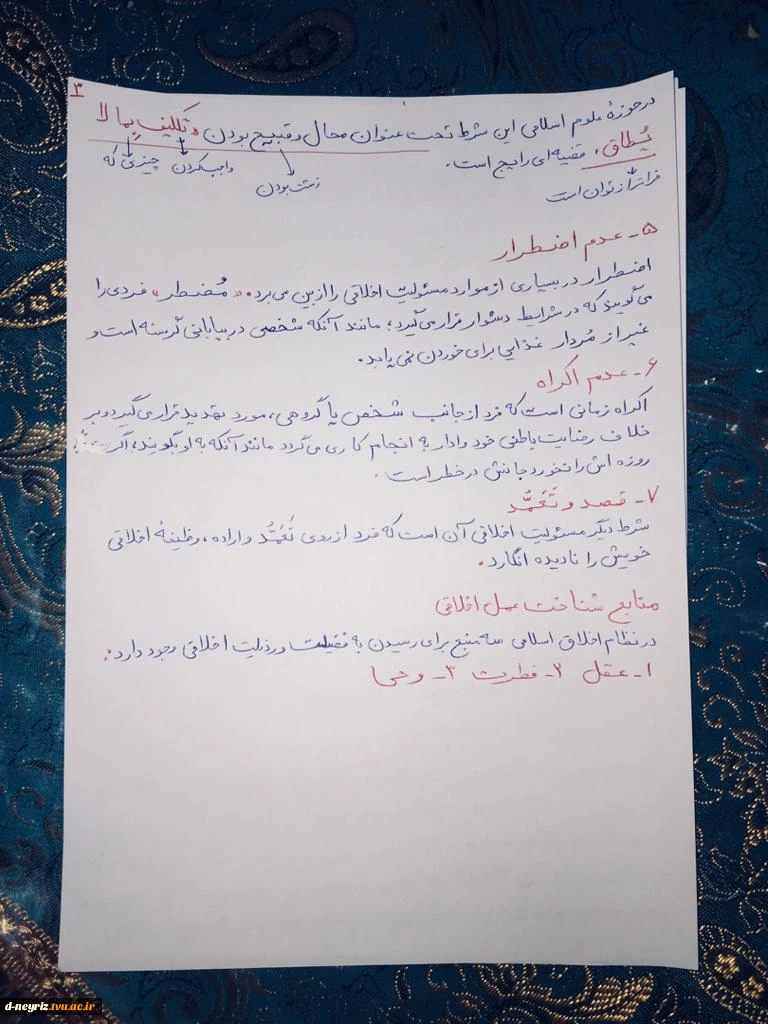 ۳
در حوزهٔ علوم اسلامی این شرط تحت عنوان محال و قبیح بودن «تکلیف بِما لا
یُطاق» قضیه‌ای رایج است.
زشت بودن
واجب کردن
چیزی که
فراتر از توان است
۵- عدم اضطرار
اضطرار در بسیاری از موارد مسئولیت اخلاقی را از بین می‌برد. «مُضطر» فردی را
می‌گویند که در شرایط دشوار قرار می‌گیرد؛ مانند آنکه شخصی در بیابانی گرسنه است و
غیر از مُردار غذایی برای خوردن نمی‌یابد.
۶- عدم اکراه
اکراه زمانی است که فرد از جانب شخص یا گروهی، مورد تهدید قرار می‌گیرد و بر
خلاف رضایت باطنی خود وادار به انجام کاری می‌گردد مانند آنکه به او بگویند، اگر
روزه‌اش را نخورد جانش در خطر است.
۷- قصد و تَعَمُّد
شرط دیگر مسئولیت اخلاقی آن است که فرد از روی تَعَمُّد و اراده، وظیفهٔ اخلاقی
خویش را نادیده انگارد.
منابع شناخت عمل اخلاقی
در نظام اخلاق اسلامی سه منبع برای رسیدن به فضیلت و رذیلت اخلاقی وجود دارد:
۱- عقل ۲- فطرت ۳- وحی
d-neyriz.tvu.ac.ir